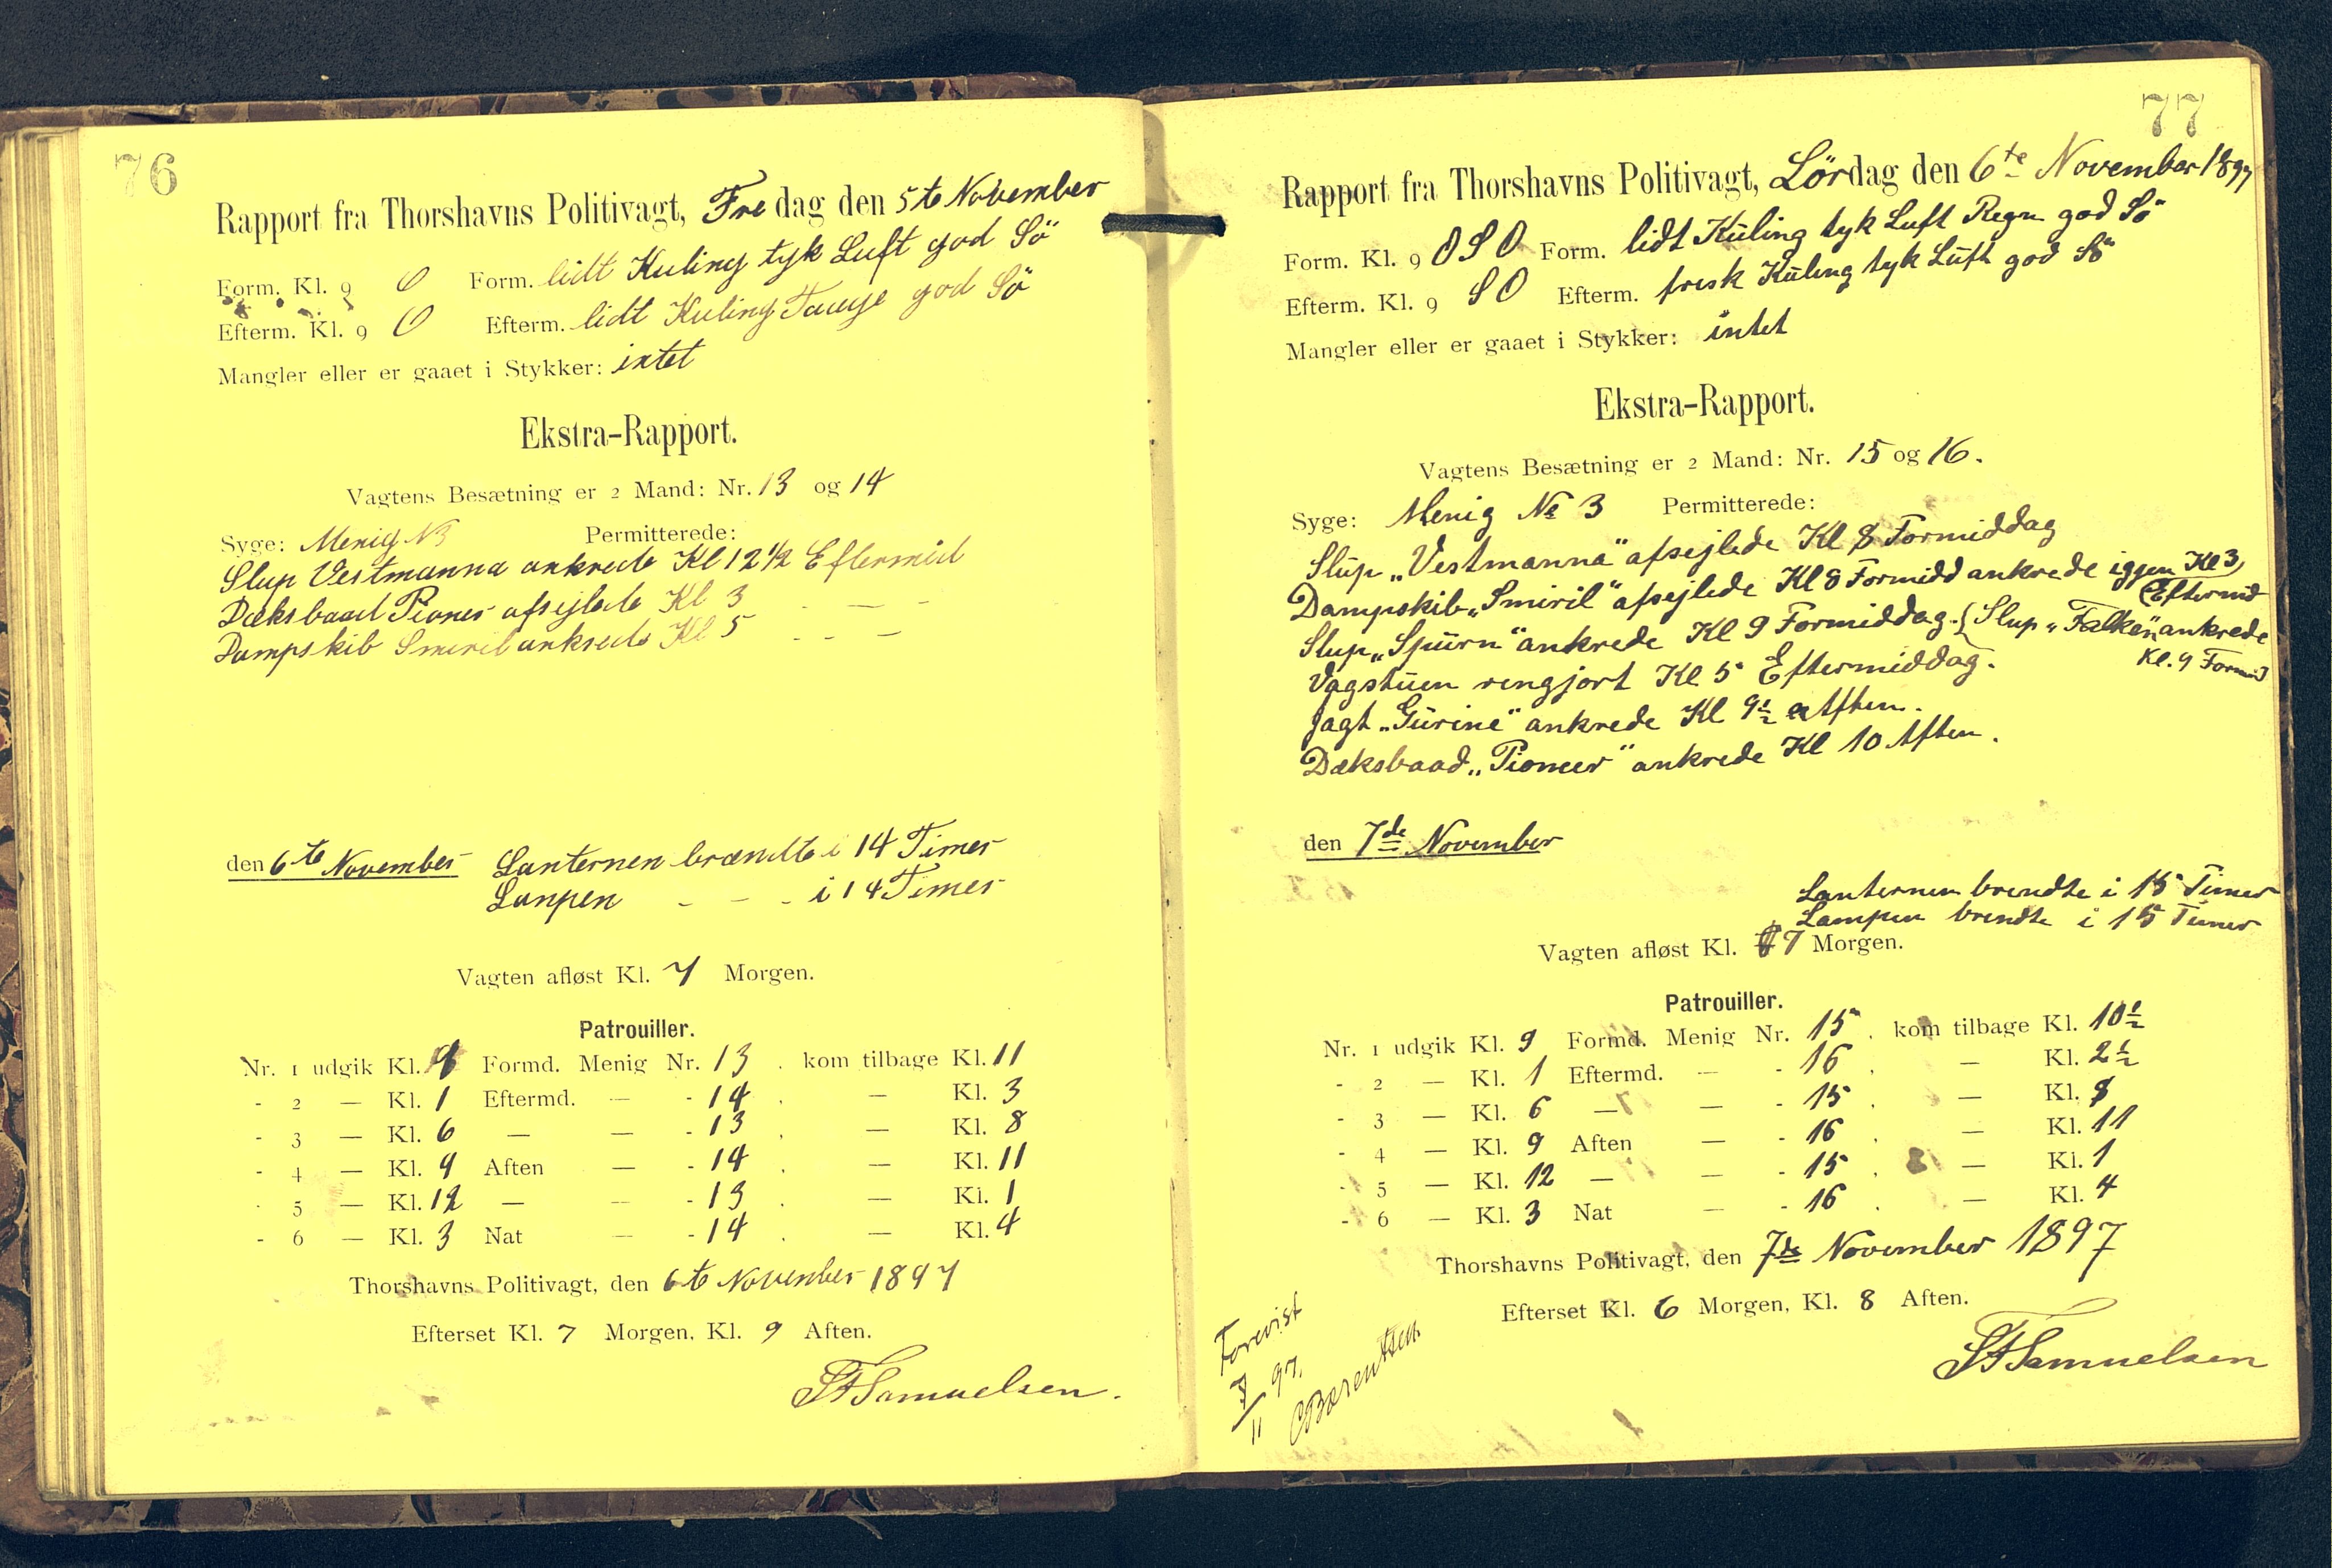 76
Rapport fra Thorshavns Politivagt, Fredag den 5te November
Form. Kl. 9 O Form. lidt Kuling tyk Luft god Sö
Efterm. Kl. 9 O Efterm. lidt Kuling Taage god Sö
Mangler eller er gaaet i Stykker: intet
Ekstra-Rapport.
Vagtens Besætning er 2 Mand: Nr. 13 og 14
Syge: Menig N3 Permitterede:
Slup Vestmanna ankrede Kl 12 1/2 Eftermid
Dæksbaad Pioner afsejlede Kl 3 - — -
Dampskib Smiril ankrede Kl 5 - - —
den 6te November Lanternen brændte i 14 Timer
Lanpen - - - i 14 Timer
Vagten afløst Kl. 7 Morgen.
Patrouiller.
Nr. 1 udgik Kl. Formd. Menig Nr. 13 . kom tilbage Kl. 11
- 2 — Kl. 1 Eftermd. — - 14 . — Kl. 3
- 3 — Kl. 6 — — - 13 . — Kl. 8
- 4 — Kl. 9 Aften — - 14 . — Kl. 11
- 5 — Kl. 12 — — - 13 . — Kl. 1
- 6 — Kl. 3 Nat — - 14 . — Kl. 4
Thorshavns Politivagt, den 6te November 1897
Efterset Kl. 7 Morgen, Kl. 9 Aften.
Samuelsen.
77
Rapport fra Thorshavns Politivagt, Lördag den 6te November 1897
Form. Kl. 9 OSO Form. lidt Kuling tyk Luft Regn god Sö
Efterm. Kl. 9 SO Efterm. frisk Kuling tyk Luft god Sö
Mangler eller er gaaet i Stykker: intet
Ekstra-Rapport.
Vagtens Besætning er 2 Mand: Nr. 15 og 16.
Syge: Menig № 3 Permitterede:
Slup „Vestmanna" afsejlede Kl 8 Formiddag
Dampskib „Smiril" afsejlede Kl 8 Formidd ankrede iggen Kl 3
Eftermid
Slup „Spurn" ankrede Kl 9 Formiddag. { Slup „Falken" ankrede
Kl. 9 Formid
Vagstuen rengjort Kl 5 Eftermiddag.
Jagt „Gurine" ankrede Kl 9½ Aften.
Dæksbaad „Pioneer" ankrede Kl 10 Aften.
den 7de November
Lanternen brendte i 15 Timer
Lampen brendte i 15 Timer
Vagten afløst Kl. 7 Morgen.
Patrouiller.
Nr. 1 udgik Kl. 9 Formd. Menig Nr. 15 . kom tilbage Kl. 10½
- 2 — Kl. 1 Eftermd. — - 16 . — Kl. 2½
- 3 — Kl. 6 — — - 15 . — Kl. 8
- 4 — Kl. 9 Aften — - 16 . — Kl. 11
- 5 — Kl. 12 — — - 15 . — Kl. 1
- 6 — Kl. 3 Nat — - 16 . — Kl. 4
Thorshavns Politivagt, den 7de November 1897
Efterset Kl. 6 Morgen, Kl. 8 Aften.
Samuelsen
Forevist
7/11 97.
CBærentsen